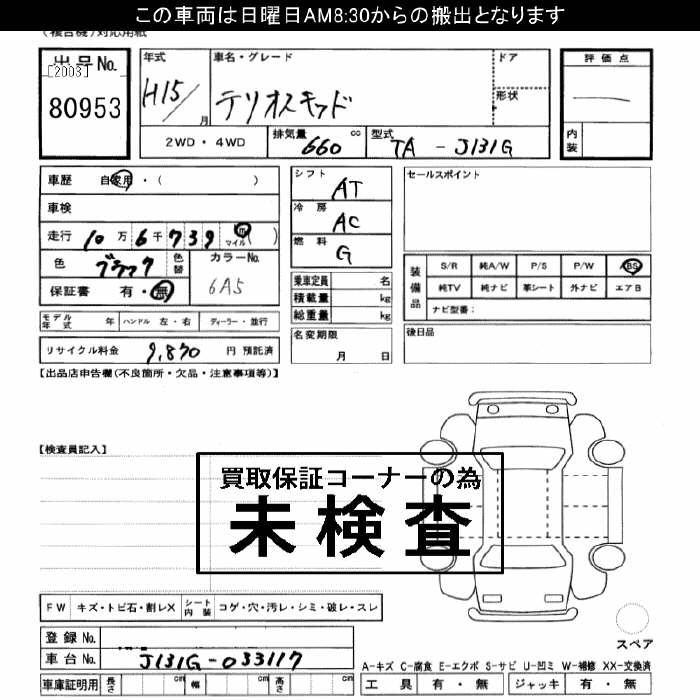 この車両は日曜日AM8:30からの搬出となります
(複合機)対応用紙
出品No.
[2003]
80953
年式
H15/
月
車名・グレード
テリオスキッド
ドア
形状
評価点
内装
2WD・4WD
排気量 660 cc
型式 TA - J131G
車歴 自家用・( )
車検
走行 10万6千739 マイル( )
色 ブラック 色替
カラーNo.
6A5
保証書 有・無
シフト AT
冷房 AC
燃料 G
乗車定員 名
積載量 kg
総重量 kg
セールスポイント
装備品
S/R 純A/W P/S P/W BS
純TV 純ナビ 革シート 外ナビ エアB
ナビ型番:
モデル年式 年 ハンドル 左・右 ディーラー・並行
名変期限
月 日
後日品
リサイクル料金 9,870 円 預託済
【出品店申告欄(不良箇所・欠品・注意事項等)】
【検査員記入】
買取保証コーナーの為
未検査
FW キズ・トビ石・割レX シート内装 コゲ・穴・汚レ・シミ・破レ・スレ
登録No.
車台No. J131G-033117
スペア
A-キズ C-腐食 E-エクボ S-サビ U-凹ミ W-補修 XX-交換済
車庫証明用 長さ cm 幅 cm 高さ cm
工具 有・無 ジャッキ 有・無